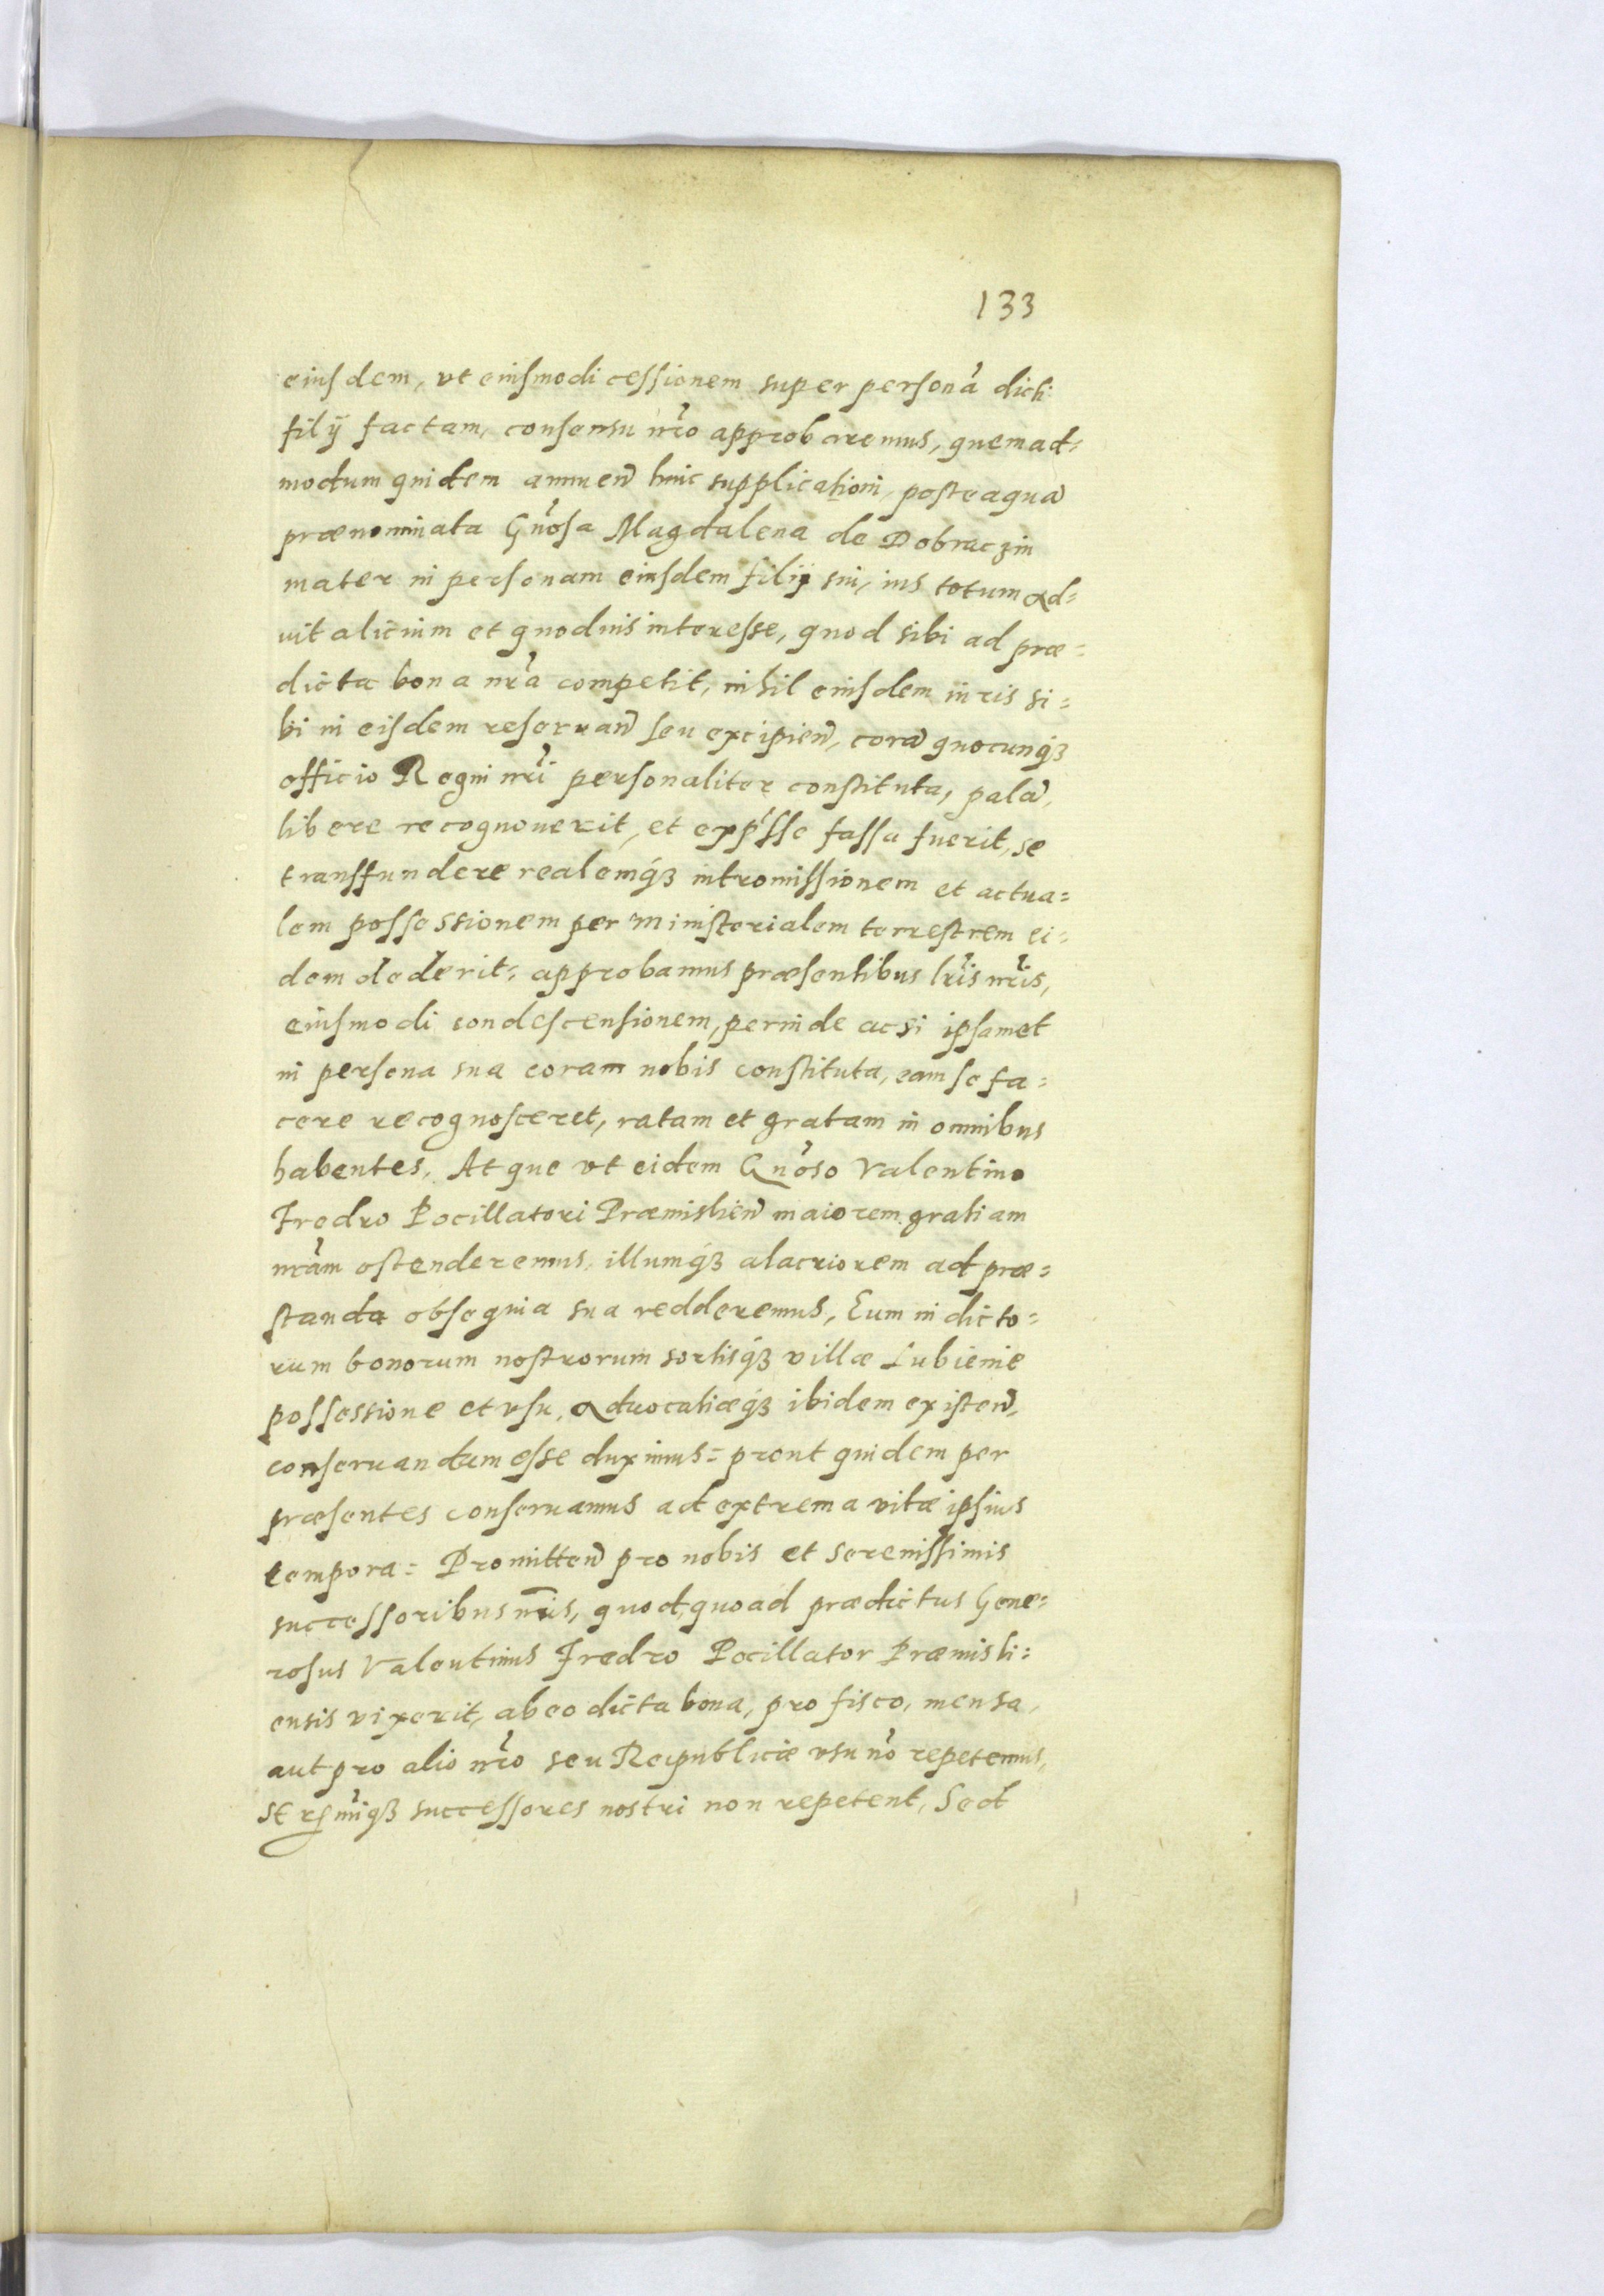 133
eiusdem, vt eiusmodi cessionem super persona᷑ dicti
filÿ factam, consensu nr̃o approbaremus, quemad=
modum quidem annuen̄ huic supplicationi, posteaquā
prænominata Gñosa Magdalena de Dobraczin
mater in personam eiusdem filÿ sui, ius totum ad=
uitalicium et quoduis interesse, quod sibi ad præ=
dicta bona nr̃a competit, nihil eiusdem iuris si=
bi in eisdem reseruan̄ seu excipien̄, corā quocunq́ꝫ
officio Regni nr̃i personaliter constituta, palā,
libere recognouerit, et exp̃sse fassa fuerit, se
transfundere realemq́ꝫ intromissionem et actua=
lem possessionem per ministerialem terrestrem ei=
dem dederit: approbamus præsentibus lr̃is nr̃is,
eiusmodi condescensionem, perinde ac si ipsamet
in persona sua coram nobis constituta, eam se fa=
cere recognosceret, ratam et gratam in omnibus
habentes. Atque vt eidem Gñoso Valentino
Fredro Pocillatori Præmislien̄ maiorem gratiam
nr̃am ostenderemus, illumq́ꝫ alacriorem ad præ=
standa obsequia sua redderemus, Eum in dicto=
rum bonorum nostrorum sortisq́ꝫ villæ Lubienie
possessione et vsu, aduocatiæq́ꝫ ibidem existen̄,
conseruandum esse duximus: prout quidem per
præsentes conseruamus ad extrema vitæ ipsius
tempora: Promitten̄ pro nobis et serenissimis
successoribus nr̄is, quod, quoad prædictus Gene=
rosus Valentinus Fredro Pocillator Præmisli=
ensis vixerit, ab eo dicta bona, pro fisco, mensa,
aut pro alio nr̃o seu Reipublicæ vsu nõ repetemus,
Serẽmiqꝫ successores nostri non repetent, Sed